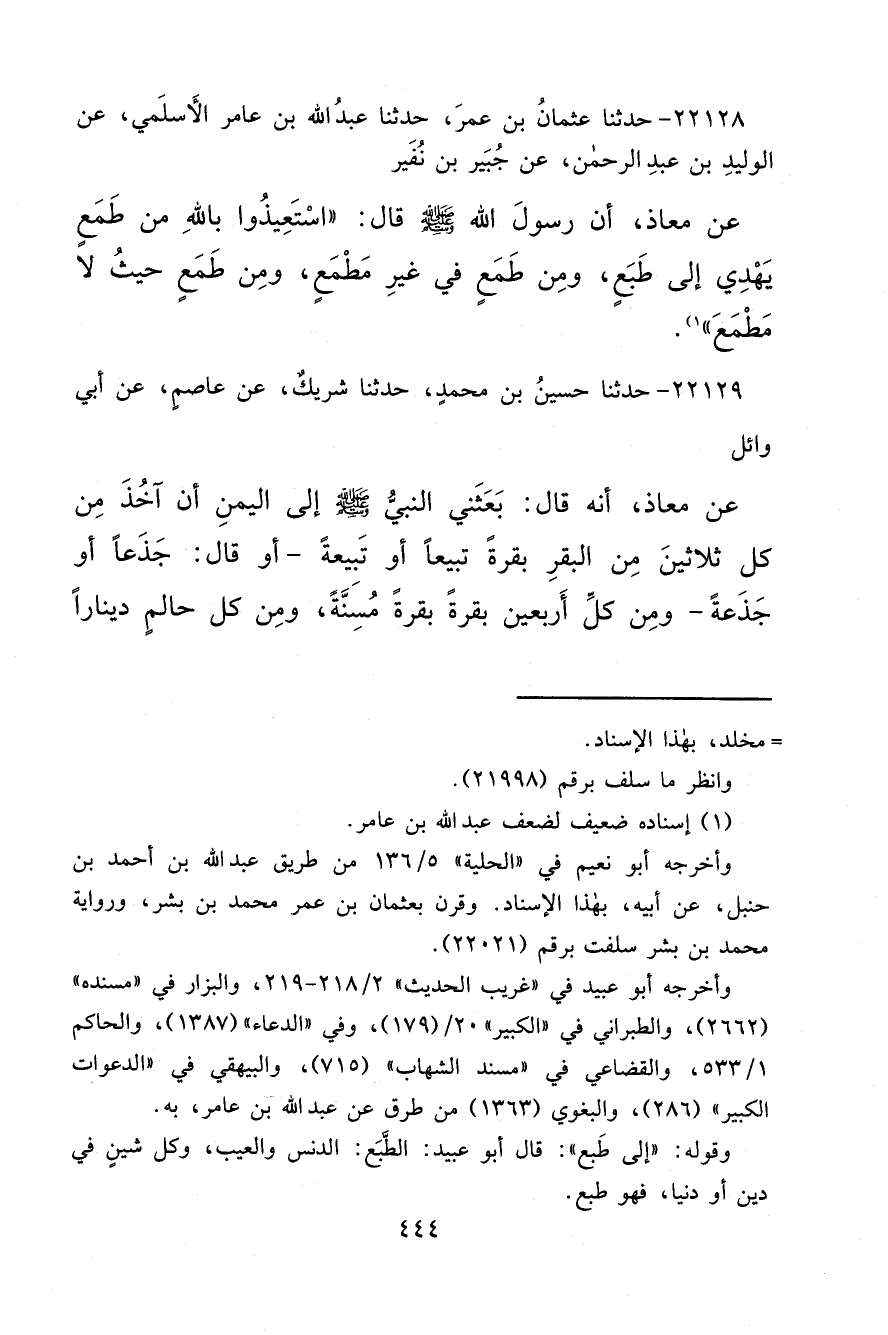 ٢٢١٢٨- حدثنا عثمانُ بن عمرَ، حدثنا عبدُ الله بن عامر الأَسلَمي، عن
الوليدِ بن عبدِ الرحمٰن، عن جُبَير بن نُفَير
عن معاذ، أن رسولَ الله ﷺ قال: «اسْتَعِيذُوا باللهِ من طَمَعٍ
يَهْدِي إلى طَبَعٍ، ومِن طَمَعٍ في غيرِ مَطْمَعٍ، ومِن طَمَعٍ حيثُ لا
مَطْمَعَ»(١).
٢٢١٢٩- حدثنا حسينُ بن محمدٍ، حدثنا شريكٌ، عن عاصمٍ، عن أبي
وائل
عن معاذ، أنه قال: بَعَثَني النبيُّ ﷺ إلى اليمنِ أن آخُذَ مِن
كل ثلاثينَ مِن البقرِ بقرةً تبيعاً أو تَبيعةً -أو قال: جَذَعاً أو
جَذَعةً- ومِن كلِّ أَربعين بقرةً بقرةً مُسِنَّةً، ومِن كل حالمٍ ديناراً
= مخلد، بهٰذا الإسناد.
وانظر ما سلف برقم (٢١٩٩٨).
(١) إسناده ضعيف لضعف عبد الله بن عامر.
وأخرجه أبو نعيم في «الحلية» ١٣٦/٥ من طريق عبد الله بن أحمد بن
حنبل، عن أبيه، بهٰذا الإسناد. وقرن بعثمان بن عمر محمد بن بشر، ورواية
محمد بن بشر سلفت برقم (٢٢٠٢١).
وأخرجه أبو عبيد في «غريب الحديث» ٢١٨/٢-٢١٩، والبزار في «مسنده»
(٢٦٦٢)، والطبراني في «الكبير» ٢٠/(١٧٩)، وفي «الدعاء» (١٣٨٧)، والحاكم
٥٣٣/١، والقضاعي في «مسند الشهاب» (٧١٥)، والبيهقي في «الدعوات
الكبير» (٢٨٦)، والبغوي (١٣٦٣) من طرق عن عبد الله بن عامر، به.
وقوله: «إلى طَبع»: قال أبو عبيد: الطَّبَع: الدنس والعيب، وكل شينٍ في
دين أو دنيا، فهو طبع.
٤٤٤